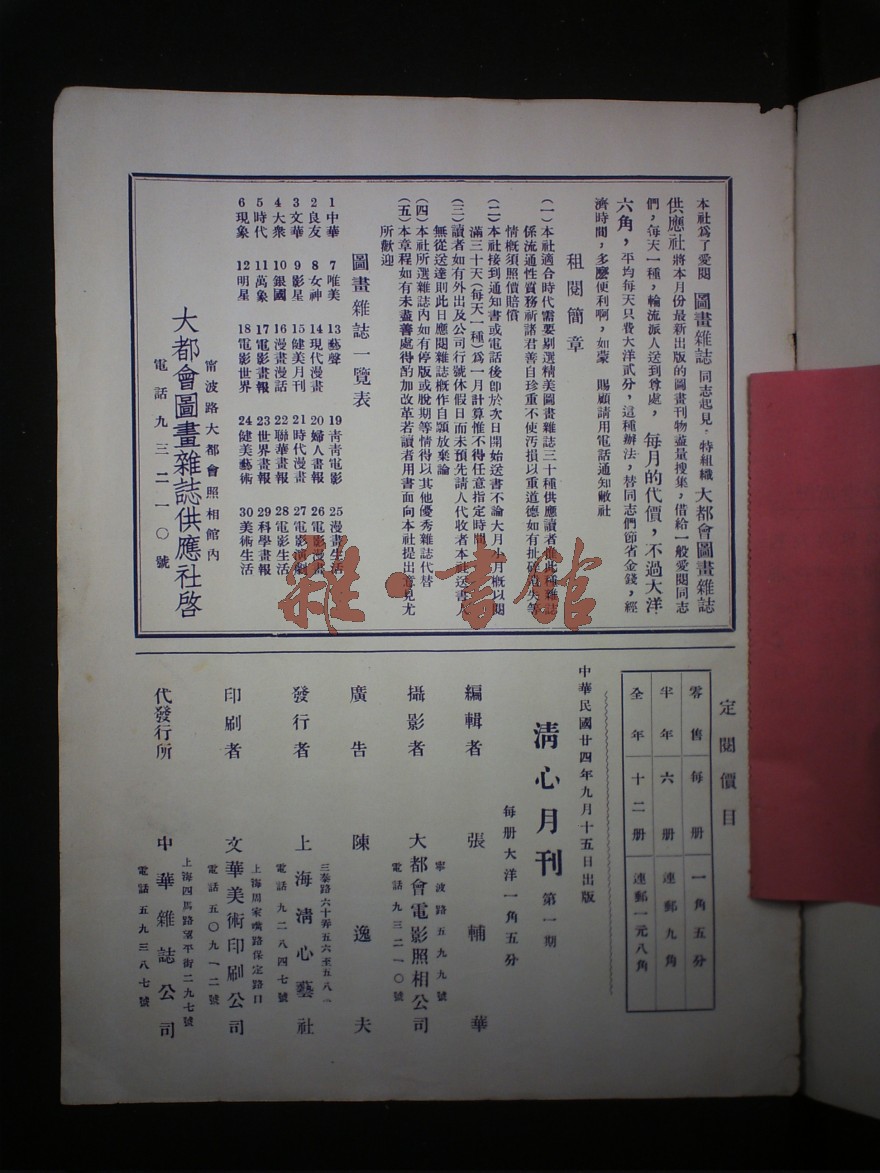 本社爲了愛閱 圖畫雜誌 同志起見,特組織 大都會圖畫雜誌
供應社 將本月份最新出版的圖畫刊物盡量搜集,借給一般愛閱同志
們,每天一種,輪流派人送到尊處, 每月的代價,不過大洋
六角,平均每天只費大洋貳分,這種辦法,替同志們節省金錢,經
濟時間,多麼便利啊,如蒙 賜顧請用電話通知敝社
租閱簡章
(一)本社適合時代需要刷選精美圖畫雜誌三十種供應讀者惟此種雜誌
係流通性質務祈諸君善自珍重不使汚損以重道德如有扯碎遺失等
情概須照價賠償
(二)本社接到通知書或電話後卽於次日開始送書不論大月小月概以閱
滿三十天(每天一種)爲一月計算惟不得任意指定時間
(三)讀者如有外出及公司行號休假日而未預先請人代收者本社送書人
無從送達則此日應閱雜誌概作自願放棄論
(四)本社所選雜誌內如有停版或脫期等情得以其他優秀雜誌代替
(五)本章程如有未盡善處得酌加改革若讀者用書面向本社提出意見尤
所歡迎
圖畫雜誌一覽表
1中華 7唯美 13藝聲 19青青電影 25漫畫生活
2良友 8女神 14現代漫畫 20婦人畫報 26電影漫畫
3文華 9影星 15健美月刊 21時代漫畫 27電影演劇
4大衆 10銀國 16漫畫漫話 22聯華畫報 28電影生活
5時代 11萬象 17電影畫報 23世界畫報 29科學畫報
6現象 12明星 18電影世界 24健美藝術 30美術生活
大都會圖畫雜誌供應社啓
甯波路大都會照相館內
電話九三二一〇號
雜·書館
定閱價目
零售每册 一角五分
半年六册 連郵九角
全年十二册 連郵一元八角
中華民國廿四年九月十五日出版
清心月刊 第一期
每册大洋一角五分
編輯者 張輔華
攝影者 大都會電影照相公司
寧波路五九九號
電話九三二一〇號
廣告 陳逸夫
發行者 上海清心藝社
三泰路六十弄五六至五八
電話九二八四七號
印刷者 文華美術印刷公司
上海周家嘴路保定路口
電話五〇九一二號
代發行所 中華雜誌公司
上海四馬路望平街二九七號
電話五九三八七號